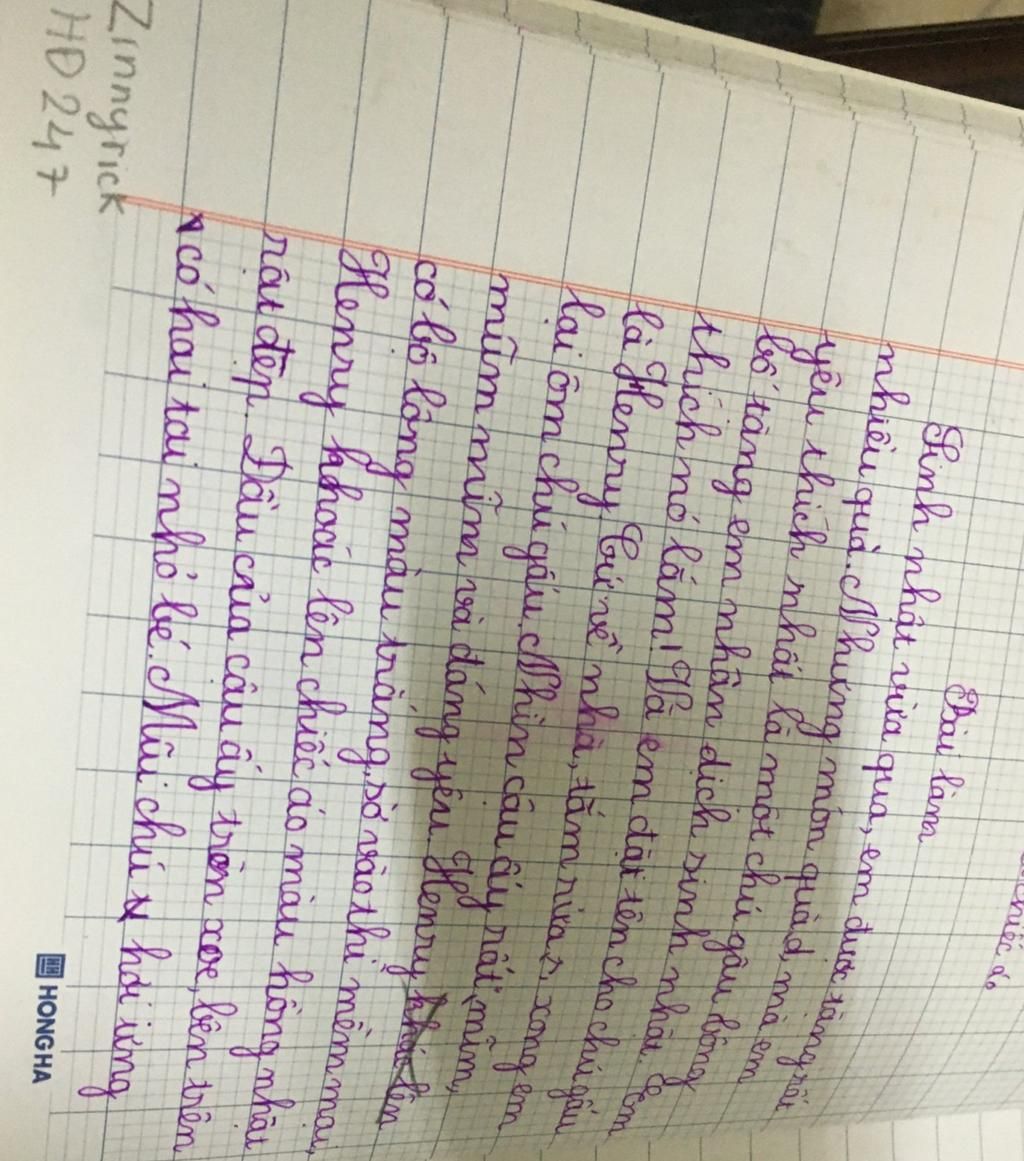 Bài làm
Sinh nhật vừa qua, em được tặng rất
nhiều quà. Nhưng món quà mà em
yêu thích nhất là một chú gấu bông
bố tặng em nhân dịch sinh nhật. Em
thích nó lắm! Và em đặt tên cho chú gấu
là Henry. Cứ về nhà, tắm rửa xong em
lại ôm chú gấu. Nhìn cậu ấy rất mũm,
mũm mĩm và đáng yêu. Henry
có bộ lông màu trắng, sờ vào thì mềm mại,
Henry khoác lên chiếc áo màu hồng nhạt
rất đẹp. Đầu của cậu ấy tròn xoe, bên trên
có hai tai nhỏ bé. Mũi chú hơi ửng
Zinnyrick
HĐ 247
HONGHA